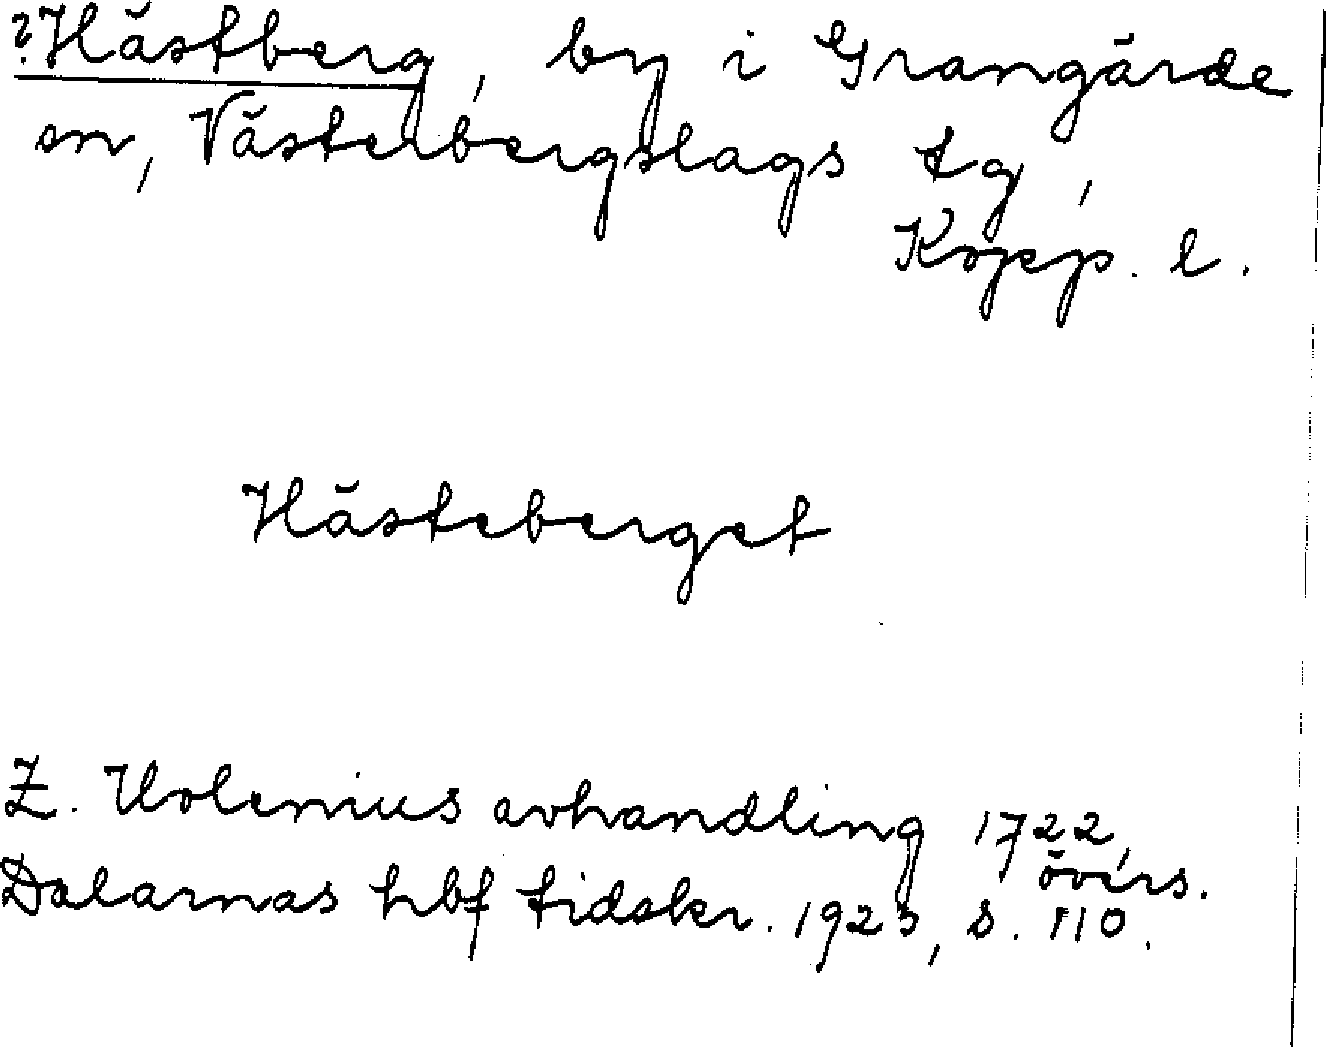 ? Hästberg, by i Grangärde
sn, Västerbergslags tg,
Kopp. l.
Hästeberget
Z. Holenius avhandling 1722,
övers.
Dalarnas hbf tidskr. 1923, s. 110.